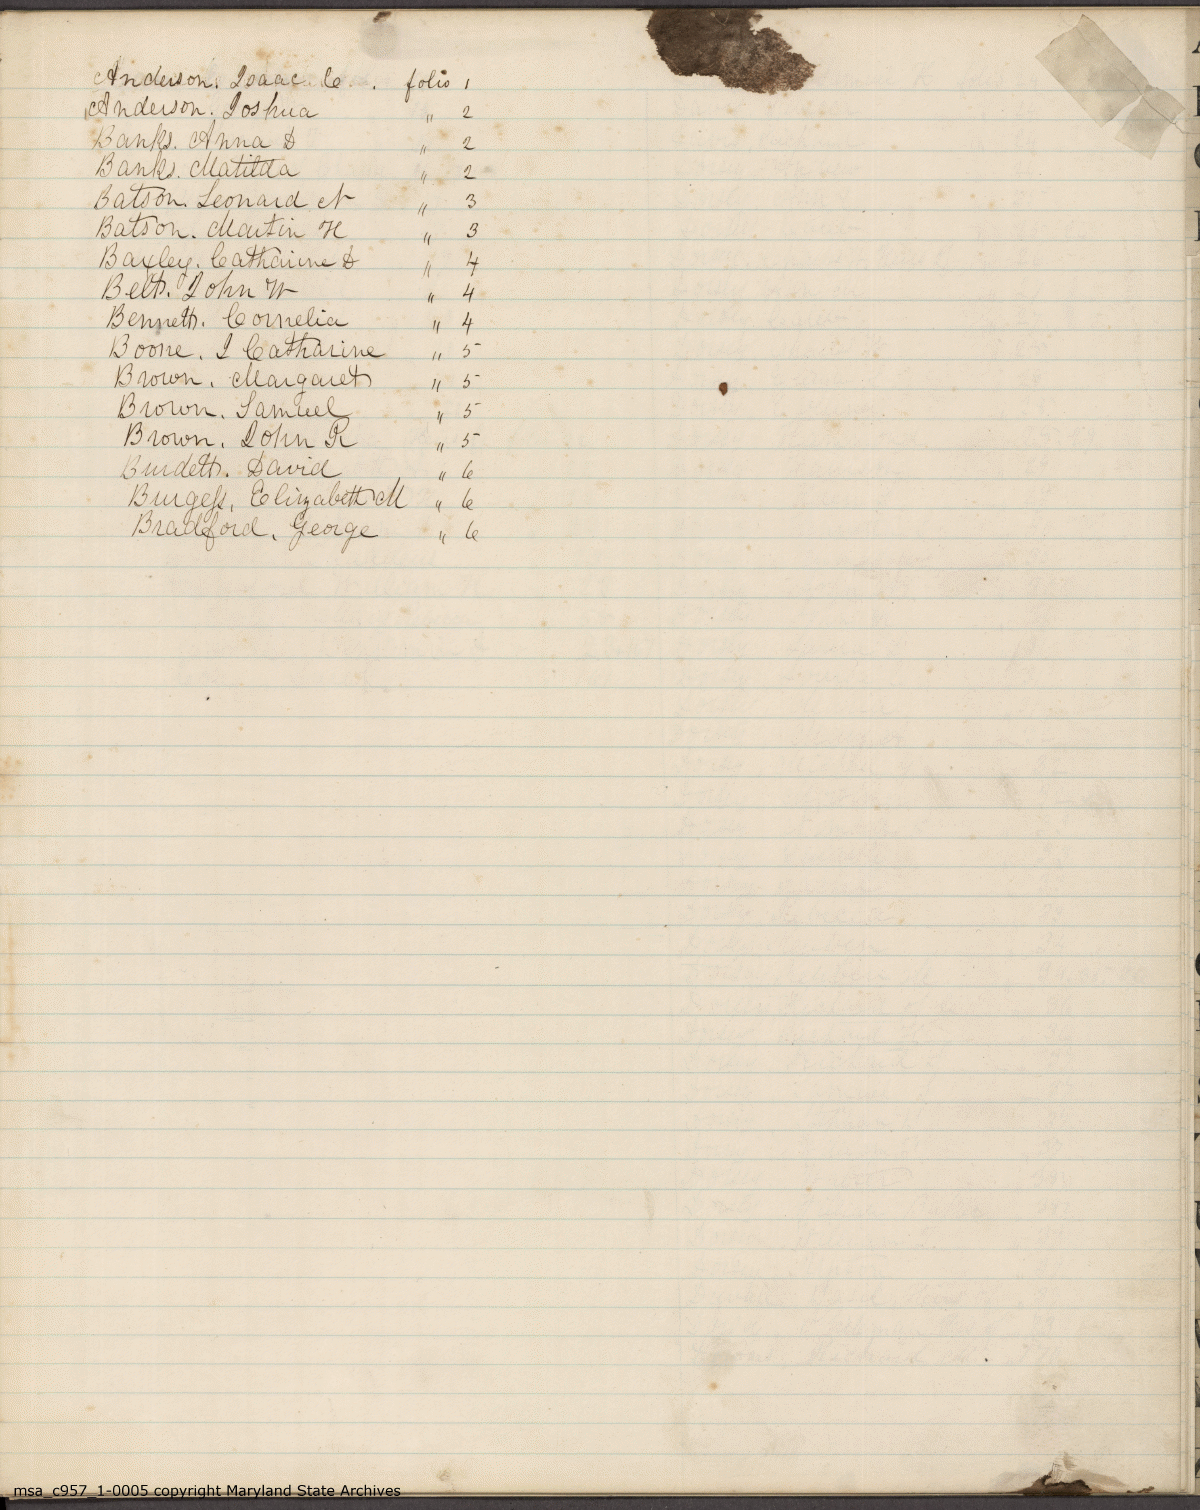 Anderson. Isaac C. . folio 1
Anderson. Joshua " 2
Banks. Anna D " 2
Banks. Matilda " 2
Batson. Leonard N " 3
Batson. Martin H " 3
Baxley. Catharine D " 4
Belt. John W " 4
Bennett. Cornelia " 4
Boone. J Catharine " 5
Brown. Margaret " 5
Brown. Samuel " 5
Brown. John R " 5
Burdett. David " 6
Burgess, Elizabeth M " 6
Bradford, George " 6
msa_c957_1-0005 copyright Maryland State Archives